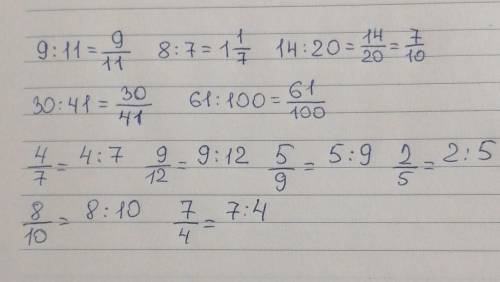 9:11=9/11 8:7=1 1/7 14:20=14/20=7/10
30:41=30/41 61:100=61/100
4/7=4:7 9/12=9:12 5/9=5:9 2/5=2:5
8/10=8:10 7/4=7:4